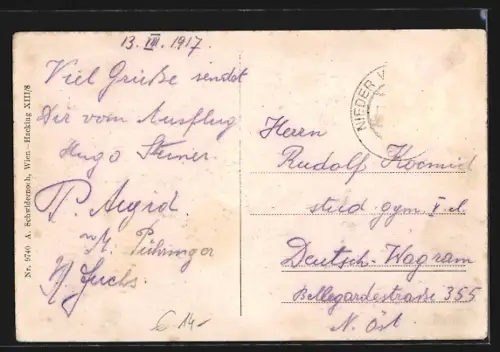 13. III. 1917.
Viel Grüße sendet
Dir vom Ausflug
Hugo Steiner
P. Aegid.
M. Pühringer
H. Fuchs.
€ 14-
Nr. 9740 A. Schwidernoch, Wien-Hacking XIII/8
NIEDER
Herrn
Rudolf
stud. gym V. cl.
Deutsch-Wagram
Bellegardestraße 355
N. Öst.